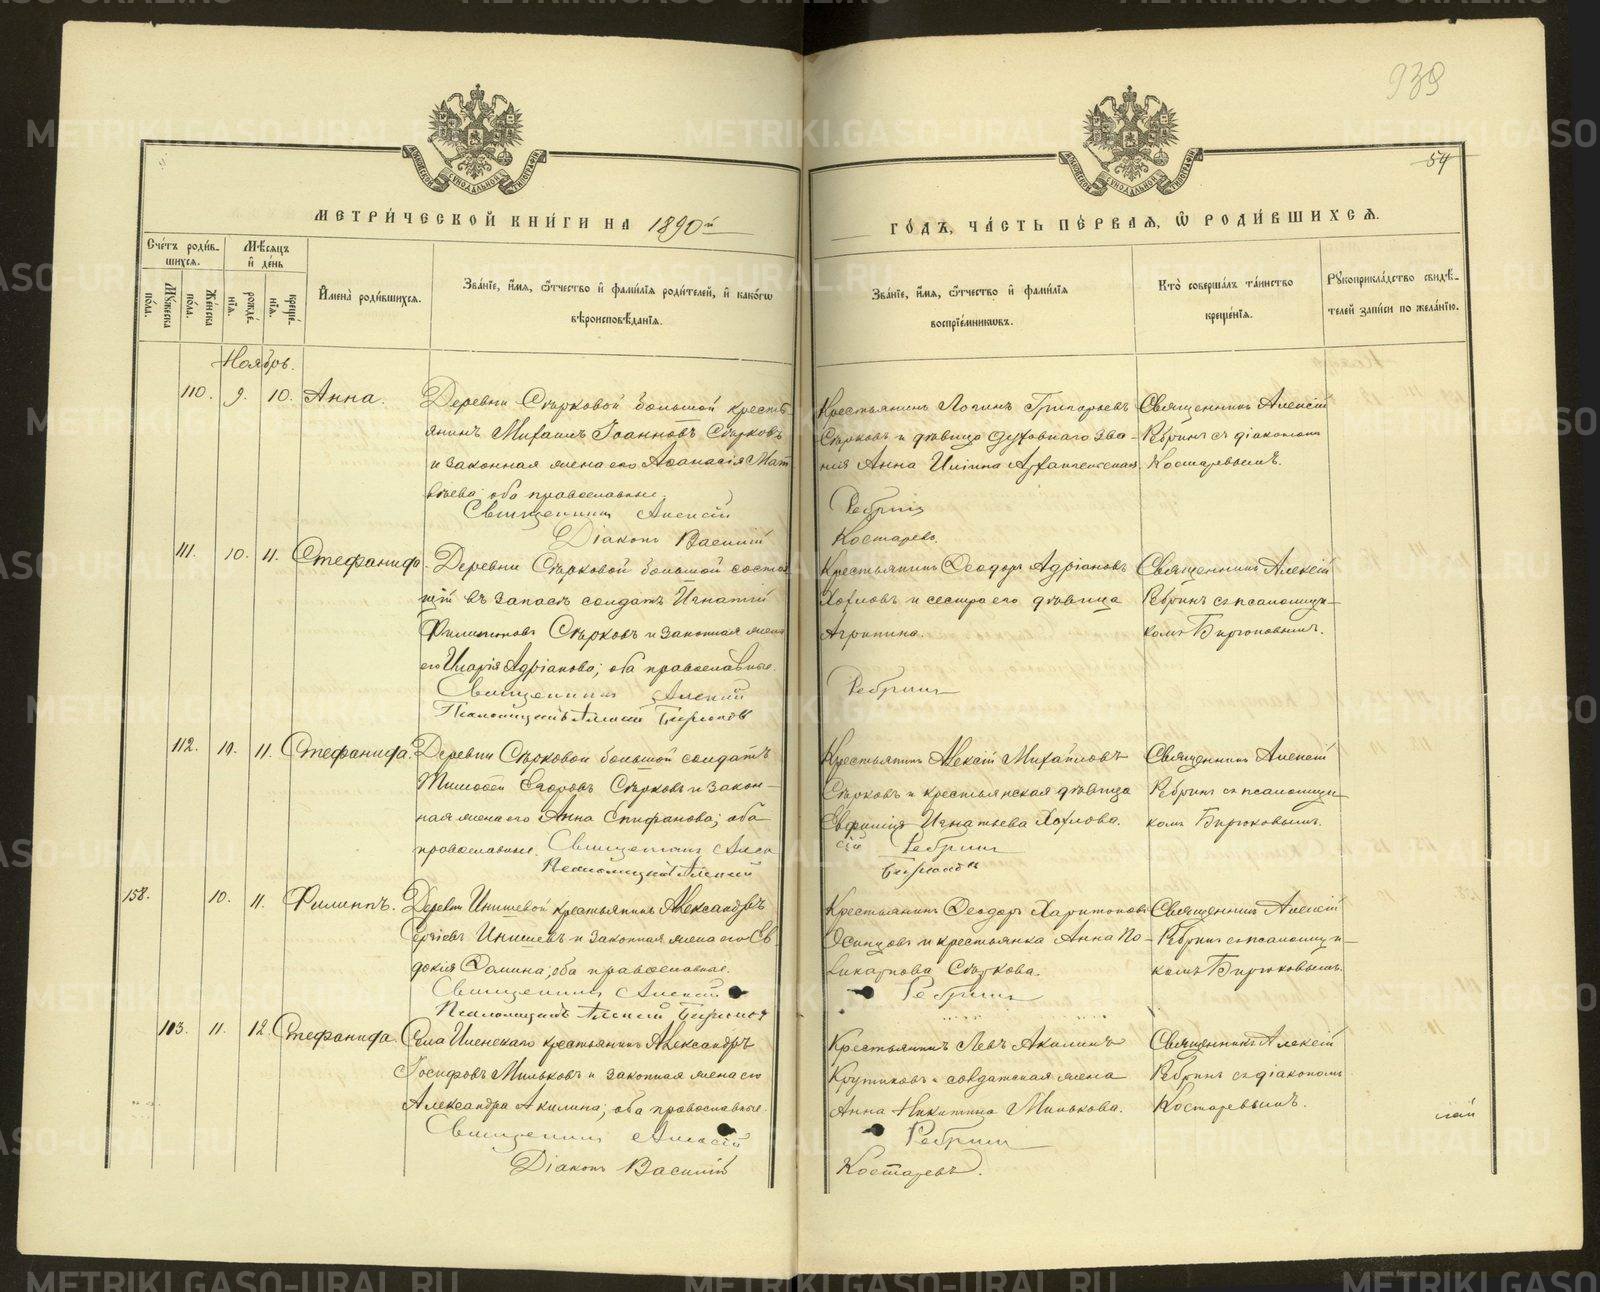 938
54
МОСКОВСКОЙ СѴНОДАЛЬНОЙ ТИПОГРАФІИ
МОСКОВСКОЙ СѴНОДАЛЬНОЙ ТИПОГРАФІИ
МЕТРИ́ЧЕСКОЙ КНИ́ГИ НА 1890й
ГО́ДЪ, ЧА́СТЬ ПЕ́РВАѦ, Ѽ РОДИ́ВШИХСѦ.
Сче́тъ роди́в-
шихся.
Мѣсяцъ
и҆ де́нь
Мꙋжеска
по́ла.
Же́нска
по́ла.
рожде́-
нїя.
креще́-
нїя.
И҆мена̀ роди́вшихся.
Зва́нїе, и҆́мя, ѻ҆́тчество и҆ фами́лїя роди́телей, и҆ како́гѡ
вѣроисповѣ́данїя.
Зва́нїе, и҆́мя, ѻ҆́тчество и҆ фами́лїя
воспрїе́мникѡвъ.
Кто̀ соверша́лъ та́инство
креще́нїя.
Рꙋкоприкла́дство свидѣ́-
телей за́писи по жела́нїю.
Ноябрь.
110. 9. 10. Анна.
Деревни Сѣрковой большой кресть-
янинъ Михаилъ Іоанновъ Сѣрковъ
и законная жена его Аѳанасія Мат
вѣева; оба православные.
Священникъ Алексій
Діаконъ Василій
Крестьянинъ Логинъ Григорьевъ
Сѣрковъ и дѣвица духовнаго зва-
нія Анна Иліина Архангельская.
Ребринъ
Костаревъ.
Священникъ Алексій
Ребринъ съ діакономъ
Костаревымъ.
111. 10. 11. Стефанида.
Деревни Сѣрковой большой состоя
щій въ запасѣ солдатъ Игнатій
Филиповъ Сѣрковъ и законная жена
его Марія Адріанова; оба православные.
Священникъ Алексій
Псаломщикъ Алексій Бирюковъ
Крестьянинъ Ѳеодоръ Адріановъ
Хохловъ и сестра его дѣвица
Агрипина.
Ребринъ
Священникъ Алексій
Ребринъ съ псаломщи-
комъ Бирюковымъ.
112. 10. 11. Стефанида.
Деревни Сѣрковой большой солдатъ
Тимоѳей Егоровъ Сѣрковъ и закон-
ная жена его Анна Епифанова; оба
православные. Священникъ Алек
Псаломщикъ Алексій
Крестьянинъ Алексій Михайловъ
Сѣрковъ и крестьянская дѣвица
Евфимія Игнатьева Хохлова.
сій Ребринъ
Бирюковъ
Священникъ Алексій
Ребринъ съ псаломщи
комъ Бирюковымъ.
158. 10. 11. Филиппъ.
Деревни Инишевой крестьянинъ Александръ
Сергіевъ Инишевъ и законная жена его Ев
докія Ѳомина; оба православные.
Священникъ Алексій
Псаломщикъ Алексій Бирюковъ
Крестьянинъ Ѳеодоръ Харитоновъ
Осинцовъ и крестьянка Анна По-
ликарпова Сѣркова.
Ребринъ
Священникъ Алексій
Ребринъ съ псаломщи-
комъ Бирюковымъ.
113. 11. 12. Стефанида.
Села Иленскаго крестьянинъ Александръ
Іосифовъ Мильковъ и законная жена его
Александра Акилина; оба православные.
Священникъ Алексій
Діаконъ Василій
Крестьянинъ Левъ Акилинъ
Крутиковъ и солдатская жена
Анна Никитина Милькова.
Ребринъ
Костаревъ.
Священникъ Алексій
Ребринъ съ діакономъ
Костаревымъ.
METRIKI.GASO-URAL.RU